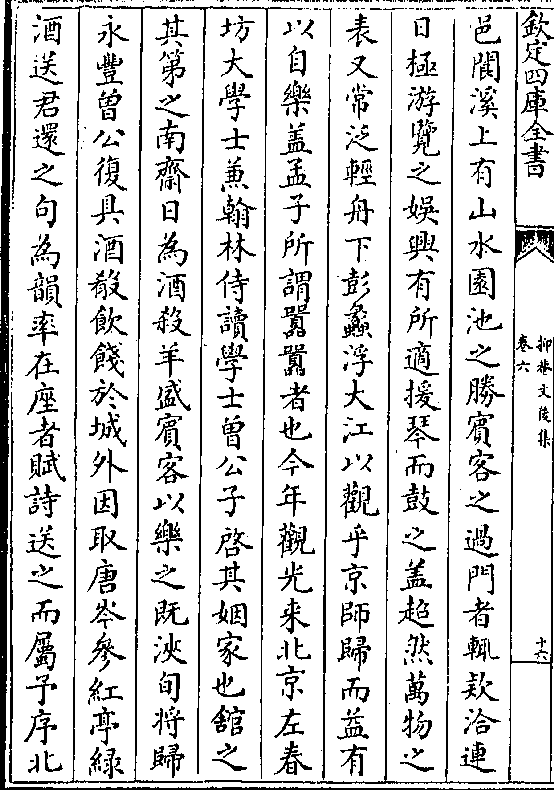 欽定四庫全書
抑菴文後集
卷六
十六
邑閣溪上有山水園池之勝賓客之過門者輒欵洽連
日極游覽之娱興有所適援琴而鼓之盖超然萬物之
表又常泛輕舟下彭蠡浮大江以觀乎京師歸而益有
以自樂盖孟子所謂囂囂者也今年觀光来北京左春
坊大學士兼翰林侍讀學士曾公子啓其姻家也舘之
其第之南齋日為酒殺羊盛賓客以樂之既浹旬将歸
永豐曾公復具酒殽飲餞於城外因取唐岑參紅亭緑
酒送君還之句為韻率在座者賦詩送之而屬予序北